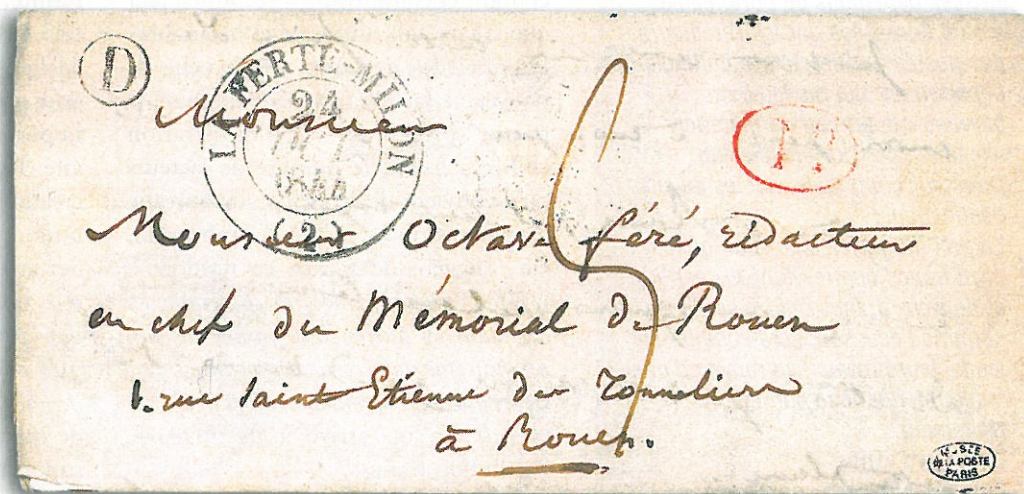 D
LA FERTÉ-MILON
24
1844
(2)
Monsieur
Monsieur Octave féré, rédacteur
en chef du Mémorial de Rouen
1. rue Saint Etienne des Tonneliers
à Rouen.
5
MUSÉE
DE LA POSTE
PARIS